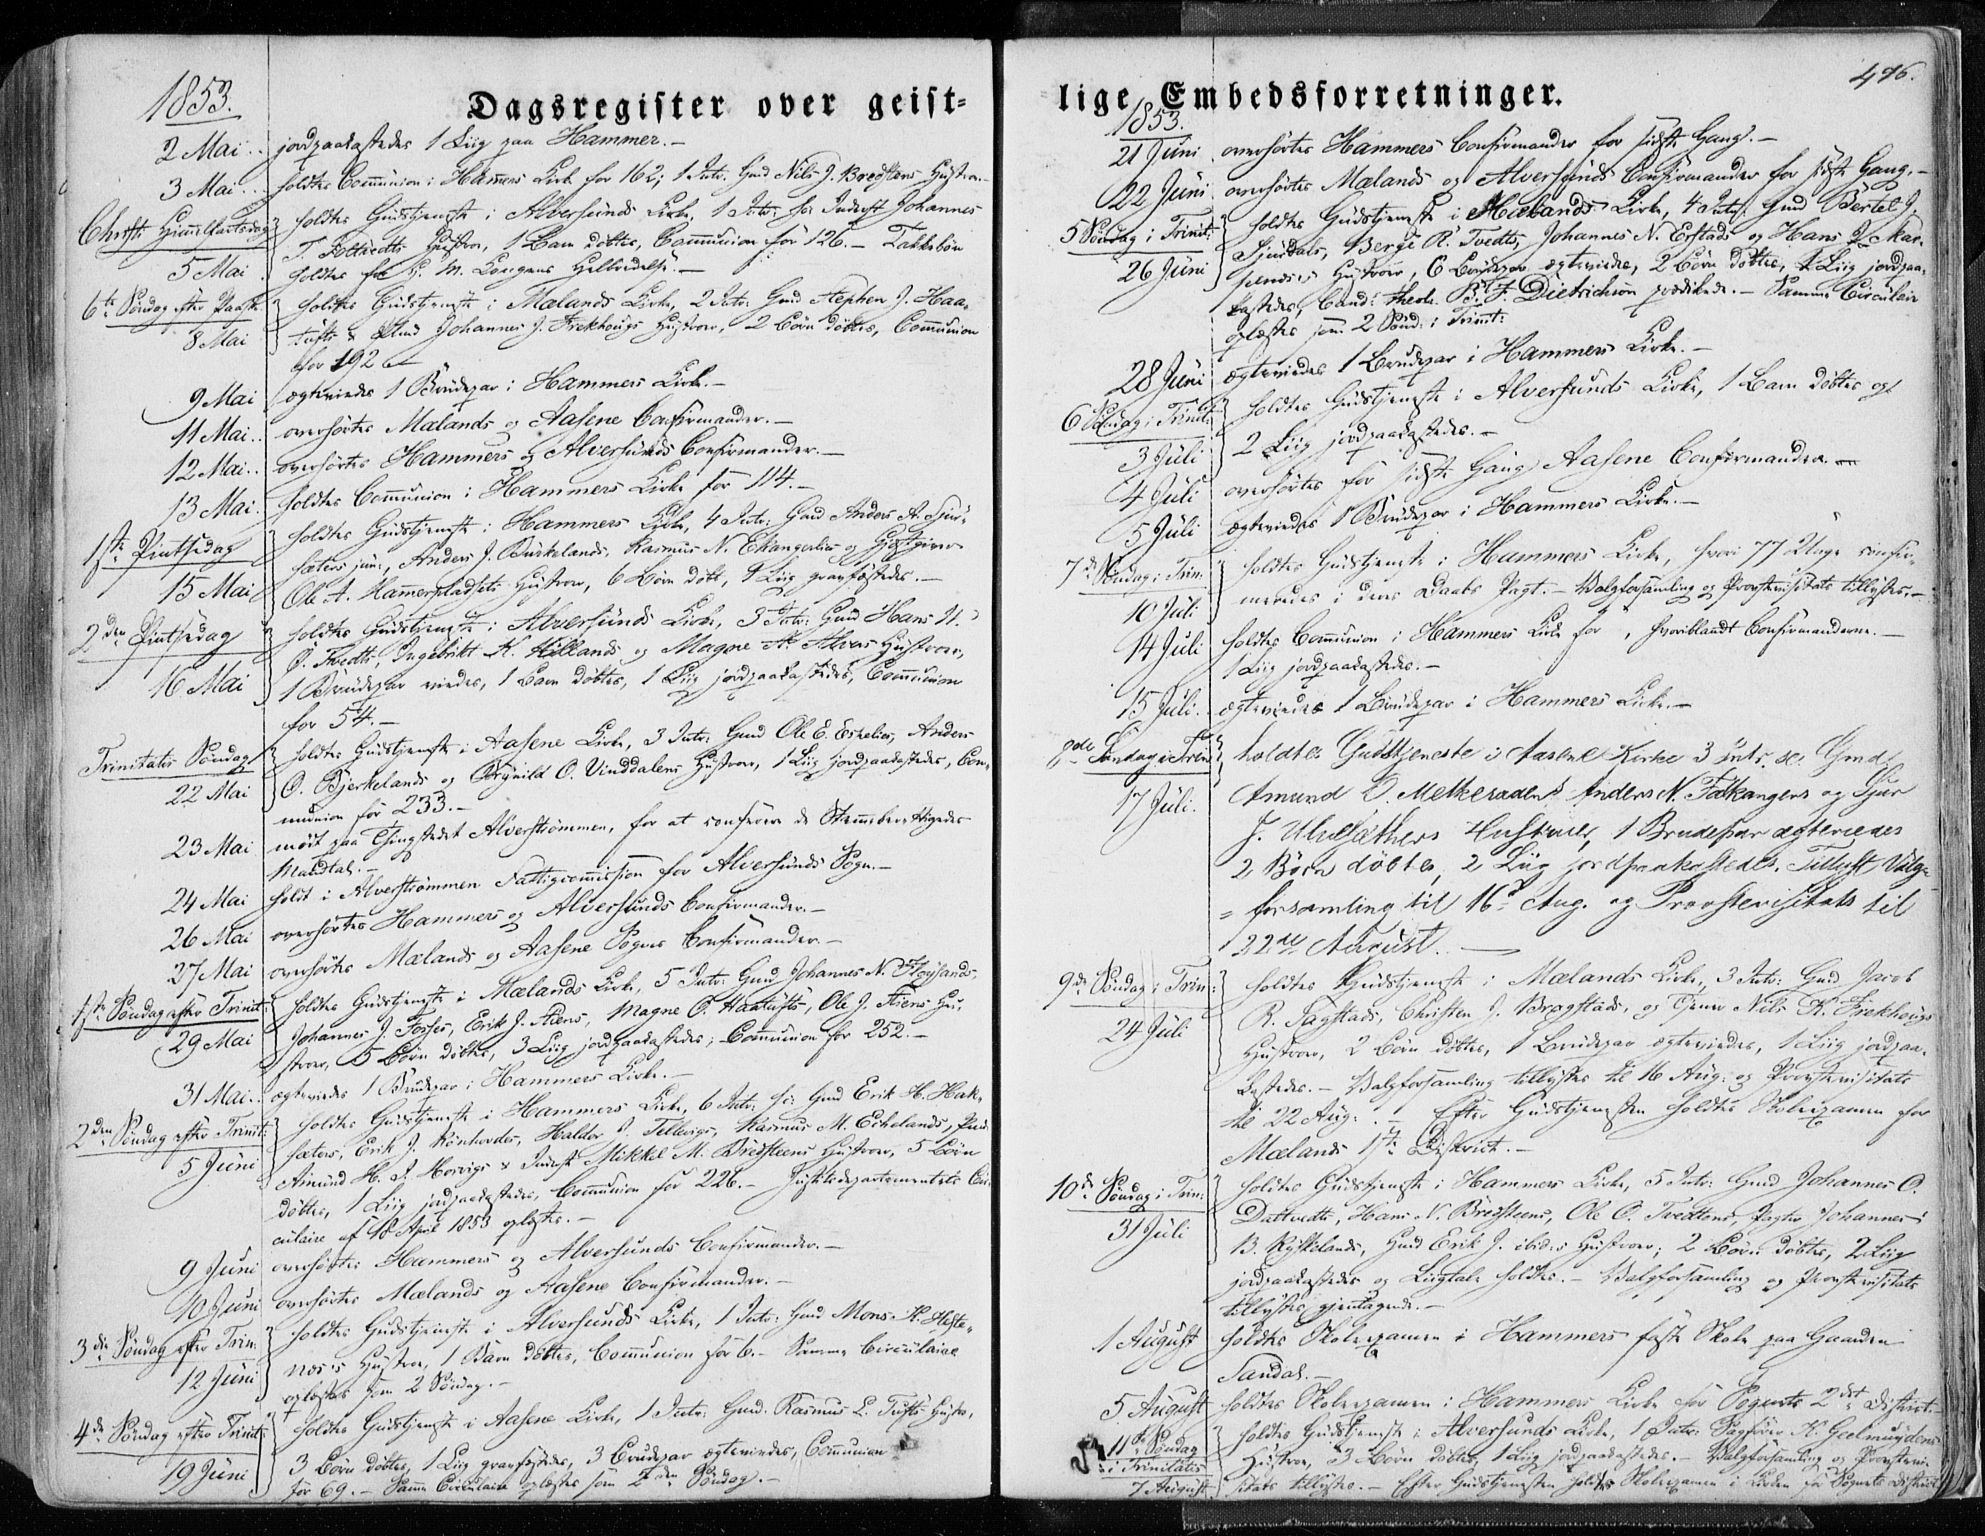 1853.
Dagsregister over geist=
2 Mai .. jordpaakastedes 1 Liig paa Hammer.-
3 Mai ... holdtes Com̄union i Ham̄ers Kirke for 162; 1 Intr: Gmd Nils J. Bredsteens Hustroe.-
Christi Himmelfartsdag holdtes Gudstjeneste i Alversunds Kirke, 1 Intr: sc: Inderst Johannes
5 Mai T. Hustroe, 1 Barn döbtes, Communion for 126.- Takkebön
holdtes for H. M. Kongens Helbredelse.-
6te Söndag efter Paaske holdtes Gudstjeneste i Mælands Kirke, 2 Intr: Gmd Stephen J. Haa=
8 Mai tufts & Gmd Johannes J. Frekhougs Hustroer, 2 Börn döbtes, Communion
for 192.-
9 Mai ægteviedes 1 Brudepar i Hammers Kirke.-
11 Mai .. overhörtes Mælands og Aasene Confirmander.-
12 Mai .. overhörtes Hammers og Alversunds Confirmander.-
13 Mai. holdtes Communion i Hammers Kirke for 114.-
1ste Pintsedag holdtes Gudstjeneste i Hammers Kirke, 4 Intr: Gmd Anders A. Tjur=
15 Mai sæters jun:, Anders J. Birkelands, Rasmus N. Eikangerlier og Gjestgiver
Ole A. Hamerpladsets Hustroer, 6 Börn döbt, 9 Liig gravfæstedes.-
2den Pintsedag holdtes Gudstjeneste i Alversunds Kirke, 3 Intr: Gmd Hans N.
16 Mai Ö. Tvedts, Ingebrikt K. Hillands og Magne A. Alvers Hustroer,
1 Brudepar viedes, 1 Barn döbtes, 1 Liig jordpaakastedes, Communion
for 54.-
Trinitatis Söndag holdtes Gudstjeneste i Aasene Kirke, 3 Intr: Gmd Ole E. Eskelier, Anders
22 Mai O. Bjerkelands og Brynild O. Vinddalens Hustroer, 1 Liig jordpaakastedes, Com=
munion for 233.-
23 Mai mödt paa Thingstedet Alverströmmen, for at conferere de Stemmeberettigedes
Mandtal.-
24 Mai holdt i Alverströmmen Fattigcommission for Alversunds Sogn.-
26 Mai overhörtes Hammers og Alversunds Confirmander.-
27 Mai overhörtes Mælands og Aasene Sogns Confirmander.-
1ste Söndag efter Trinit: holdtes Gudstjeneste i Mælands Kirke, 5 Intr: Gmd Johannes N. Höylands,
29 Mai Johannes J. Fosses, Erik J. Stens, Magne O. Haatufts, Ole J. Stens Hu=
stroer, 5 Börn döbtes, 3 Liig jordpaakastedes; Communion for 252.-
31 Mai .. ægteviedes 1 Brudepar i Hammers Kirke.-
2den Söndag efter Trinit: holdtes Gudstjeneste i Hammers Kirke, 6 Intr: sc: Gmd Erik H. Hok=
5 Juni sæters, Erik J. Rönhovdes, Haldor S. Tellevigs, Rasmus M. Echelands,
Amund H. S. Morvigs & Inderst Mikkel M. Bredsteens Hustroer, 5 Börn
döbtes, 1 Liig jordpaakastedes, Communion for 226.- Justitsdepartementets Cir=
culaire af 18 April 1853 oplæstes.-
9 Juni overhörtes Hammers og Alversunds Confirmander.-
10 Juni overhörtes Mælands og Aasene Confirmander.-
3die Söndag efter Trin: holdtes Gudstjeneste i Alversunds Kirke, 1 Intr: Gmd Mons K. Heste=
12 Juni næs's Hustroe, 1 Barn döbtes, Communion for 6.- Samme Circulaire
oplæstes som 2 Söndag.-
4de Söndag efter Trinit: holdtes Gudstjeneste i Aasene Kirke, 1 Intr: Gmd. Rasmus L. Tufts Hustro,
19 Juni 3 Börn döbtes, 1 Liig gravfæstedes, 3 Brudepar ægteviedes, Communion
for 69.- Samme Circulaire oplæstes som 2den Söndag.-
496.
lige Embedsforretninger.
1853.
21 Juni overhörtes Hammers Confirmander for sidste Gang.-
22 Juni overhörtes Mælands og Alversunds Confirmander for sidste Gang.-
5 Söndag i Trinit: holdtes Gudstjeneste i Mælands Kirke, 4 Intr: Gmd Bertel J.
26 Juni Tjurdals, Berge R. Tvedts, Johannes N. Erstads og Hans J. Mar=
Hustroer, 6 Brudepar ægteviedes, 2 Börn döbtes, 4 Liig jordpaa=
kastedes, Cand: theol: B. F. Dietrichson prædikede.- Samme Circulair
oplæstes som 2 Sönd: i Trinit:
28 Juni ægteviedes 1 Brudepar i Hammers Kirke.-
6 Söndag i Trinit: holdtes Gudstjeneste i Alversunds Kirke, 1 Barn döbtes og
3 Juli 2 Liig jordpaakastedes.-
4 Juli overhörtes for sidste Gang Aasene Confirmander.-
5 Juli ægteviedes 1 Brudepar i Hammers Kirke.-
7de Söndag i Trin: holdtes Gudstjeneste i Hammers Kirke, hvori 77 Unge confir=
10 Juli meredes i deres Daabs Pagt.- Valgforsamling og Provstevisitats tillystes.-
14 Juli holdtes Communion i Hammers Kirke for , hvoriblandt Confirmanderne.-
1 Liig jordpaakastedes.-
15 Juli. ægteviedes 1 Brudepar i Hammers Kirke.-
8de Söndag i Trin: holdtes Gudstjeneste i Aasene Kirke 3 Intr. sc: Gmd
17 Juli. Amund O. Melkeraaens Anders N. Fotkangers og Sjur
J. Ulvesæthers Hustruer, 1 Brudepar ægteviedes
2 Börn döbtes, 2 Liig jordpaakastedes. Tillyst Valg=
= forsamling til 16de Aug. og Provstevisitats til
22de August.-
9de Söndag i Trin: holdtes Gudstjeneste i Mælands Kirke, 3 Intr: Gmd Jacob
24 Juli R. Fagstads, Christen J. Brogstads, og Tjener Nils K. Frekhougs
Hustroer, 2 Börn döbtes, 1 Brudepar ægteviedes, 1 Liig jordpaa=
kastedes.- Valgforsamling tillystes til 16 Aug: og Provstevisitats
til 22 Aug:.- Efter Gudstjenesten holdtes Skoleexamen for
Mælands 1ste District.-
10de Söndag i Trin: holdtes Gudstjeneste i Hammers Kirke, 5 Intr: Gmd Johannes O.
31 Juli Dattvedts, Hans N. Bredsteens, Ole O. Tvedtens, Pagter Johannes
B. Rylkelands, Gmd Erik J. ibid:s Hustroer; 2 Börn döbtes, 2 Liig
jordpaakastedes og Liigtale holdtes.- Valgforsamling og Provstevisitats
tillystes gjentagende.-
1 August holdtes Skoleexamen i Hammers faste Skole paa Gaarden
Sandal.-
5 August holdtes Skoleexamen i Hammers Kirke for Sognets 2det District.-
11te Söndag holdtes Gudstjeneste i Alversunds Kirke, 1 Intr: Sagförer K. Geelmuydens
i Trinitatis Hustroe, 3 Börn döbtes, 1 Liig jordpaakastedes.- Valgforsamling og Provstevi=
7 August sitats tillystes.- Efter Gudstjenesten holdtes Skoleexamen i Kirken for Sognets District.